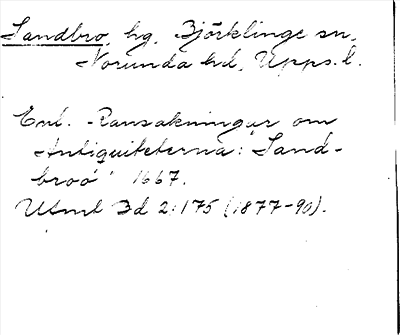 Sandbro, hg, Björklinge sn,
Norunda hd, Upps. l.
Enl. Ransakningar om
Antiquiteterna: Sand-
broó" 1667.
Utml Bd 2:175 (1877-90).